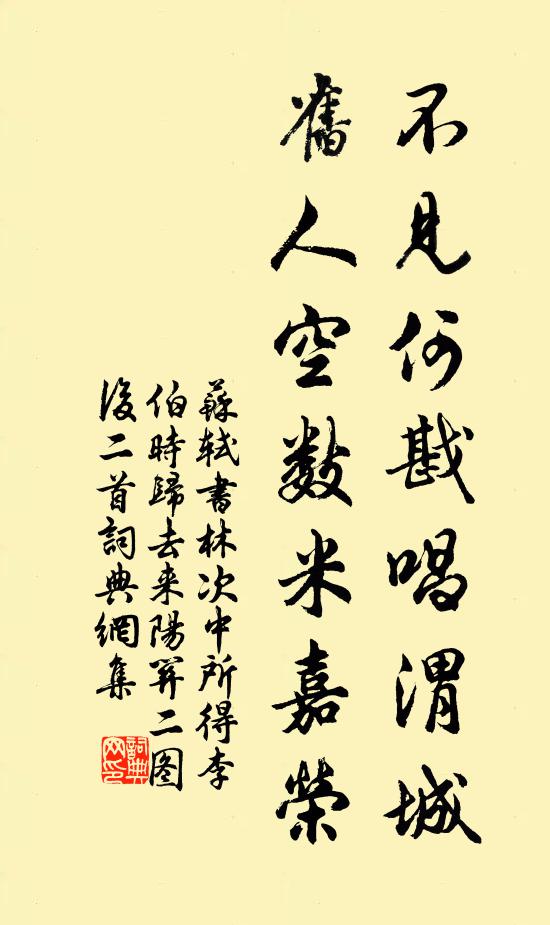 不見何戡唱渭城
舊人空數米嘉榮
蘇軾書林次中所得李
伯時歸去来陽関二图
後二首詞典網集
詞典
网印